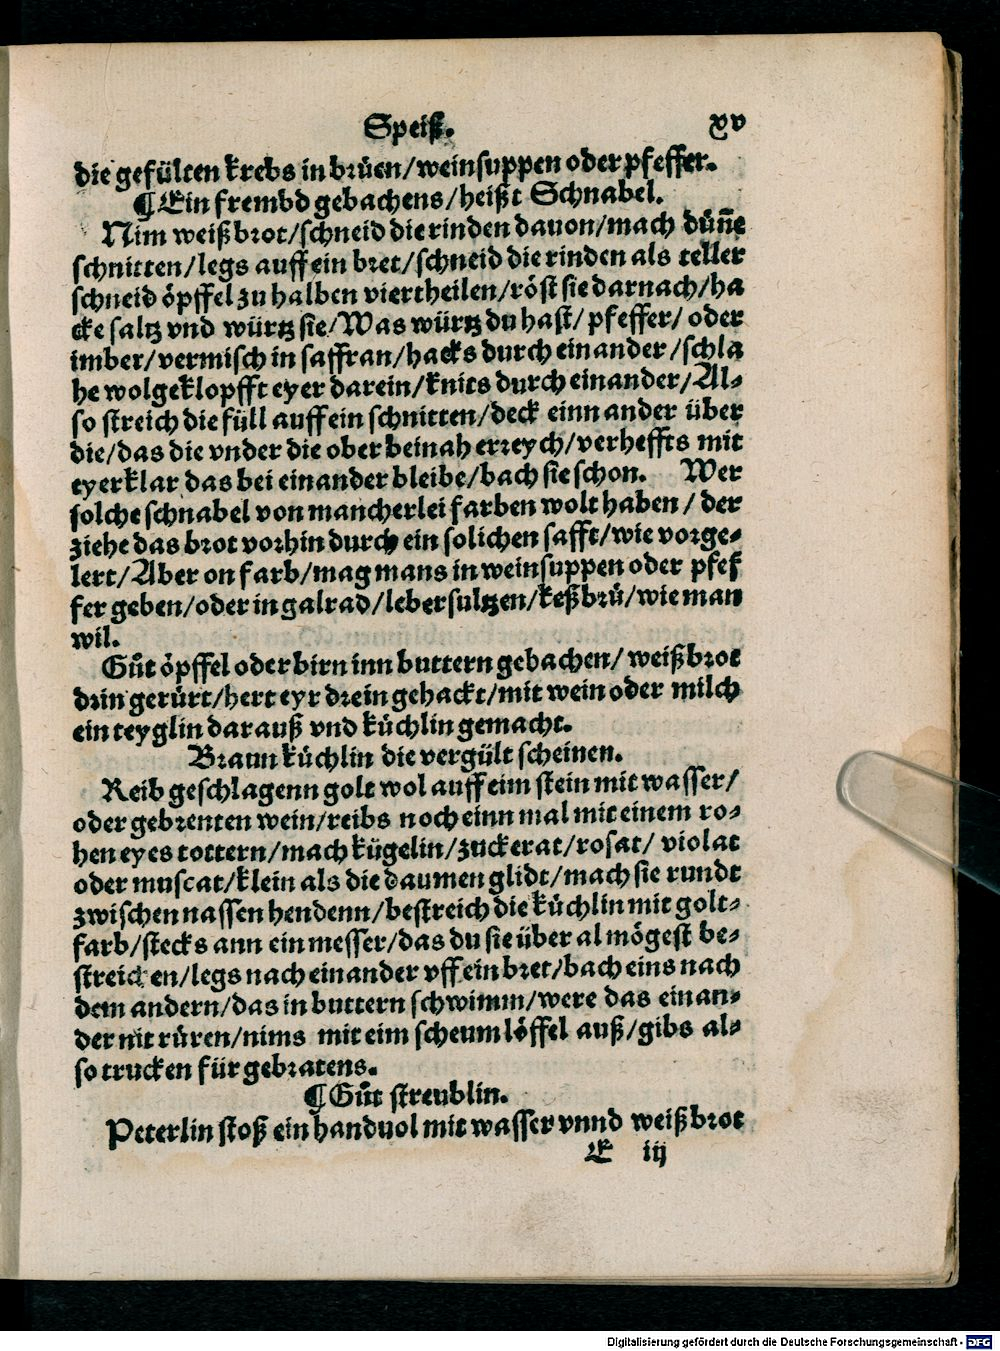 Speiß. xv
die gefülten krebs in brüen/weinsuppen oder pfeffer.
¶Ein frembd gebachens/heißt Schnabel.
Nim weißbrot/schneid die rinden dauon/mach dün̄e
schnitten/legs auff ein bret/schneid die rinden als teller
schneid öpffel zu halben viertheilen/röst sie darnach/ha
cke saltz vnd würtz sie/Was würtz du hast/pfeffer/ oder
imber/vermisch in saffran/hacks durch einander/schla
he wolgeklopfft eyer darein/knits durch einander/Al⸗
so streich die füll auff ein schnitten/deck einn ander über
die/das die vnder die ober beinah erreych/verheffts mit
eyerklar das bei einander bleibe/bach sie schon. Wer
solche schnabel von mancherlei farben wolt haben / der
ziehe das brot vorhin durch ein solichen safft/wie vorge⸗
lert/Aber on farb/mag mans in weinsuppen oder pfef
fer geben/oder in galrad/lebersultzen/keßbrü/wie man
wil.
Gůt öpffel oder birn inn buttern gebachen/ weißbrot
drin gerürt/hert eyr drein gehackt/mit wein oder milch
ein teyglin darauß vnd küchlin gemacht.
Braun küchlin die vergült scheinen.
Reib geschlagenn golt wol auff eim stein mit wasser/
oder gebrenten wein/reibs noch einn mal mit einem ro⸗
hen eyes tottern/mach kügelin/zuckerat/rosat/ violat
oder muscat/klein als die daumen glidt/mach sie rundt
zwischen nassen hendenn/bestreich die küchlin mit golt⸗
farb/stecks ann ein messer/das du sie über al mögest be⸗
streichen/legs nach einander vff ein bret/bach eins nach
dem andern/das in buttern schwimm/were das einan⸗
der nit rüren/nims mit eim scheumlöffel auß/gibs al⸗
so trucken für gebratens.
¶Gůt streublin.
Peterlin stoß ein handuol mit wasser vnnd weißbrot
E iij
Digitalisierung gefördert durch die Deutsche Forschungsgemeinschaft - DFG